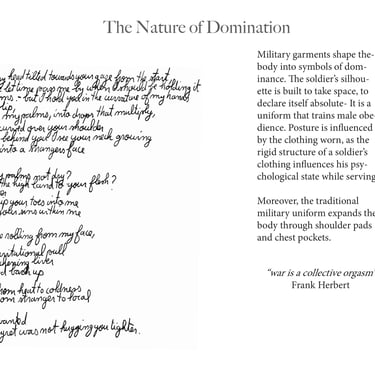 The Nature of Domination
my head tilled towards your gaze from the start
let time pass me by when should be holding it
- but I hold you in the curvature of my hands
up
my palms, into drops that multiply,
curved over your shoulder
behind you I see your neck growing
into a strangers face
palms not pray?
the high land to your flesh?
up your toes into me
sins within me
rolling from my face,
gravitational pull
liver
back up
from heat to coldness
from stranger to local
wanted
regret was not hugging you tighter.
Military garments shape the
body into symbols of dom-
inance. The soldier's silhou-
ette is built to take space, to
declare itself absolute- It is a
uniform that trains male obe-
dience. Posture is influenced
by the clothing worn, as the
rigid structure of a soldier's
clothing influences his psy-
chological state while serving
Moreover, the traditional
military uniform expands the
body through shoulder pads
and chest pockets.
"war is a collective orgasm"
Frank Herbert